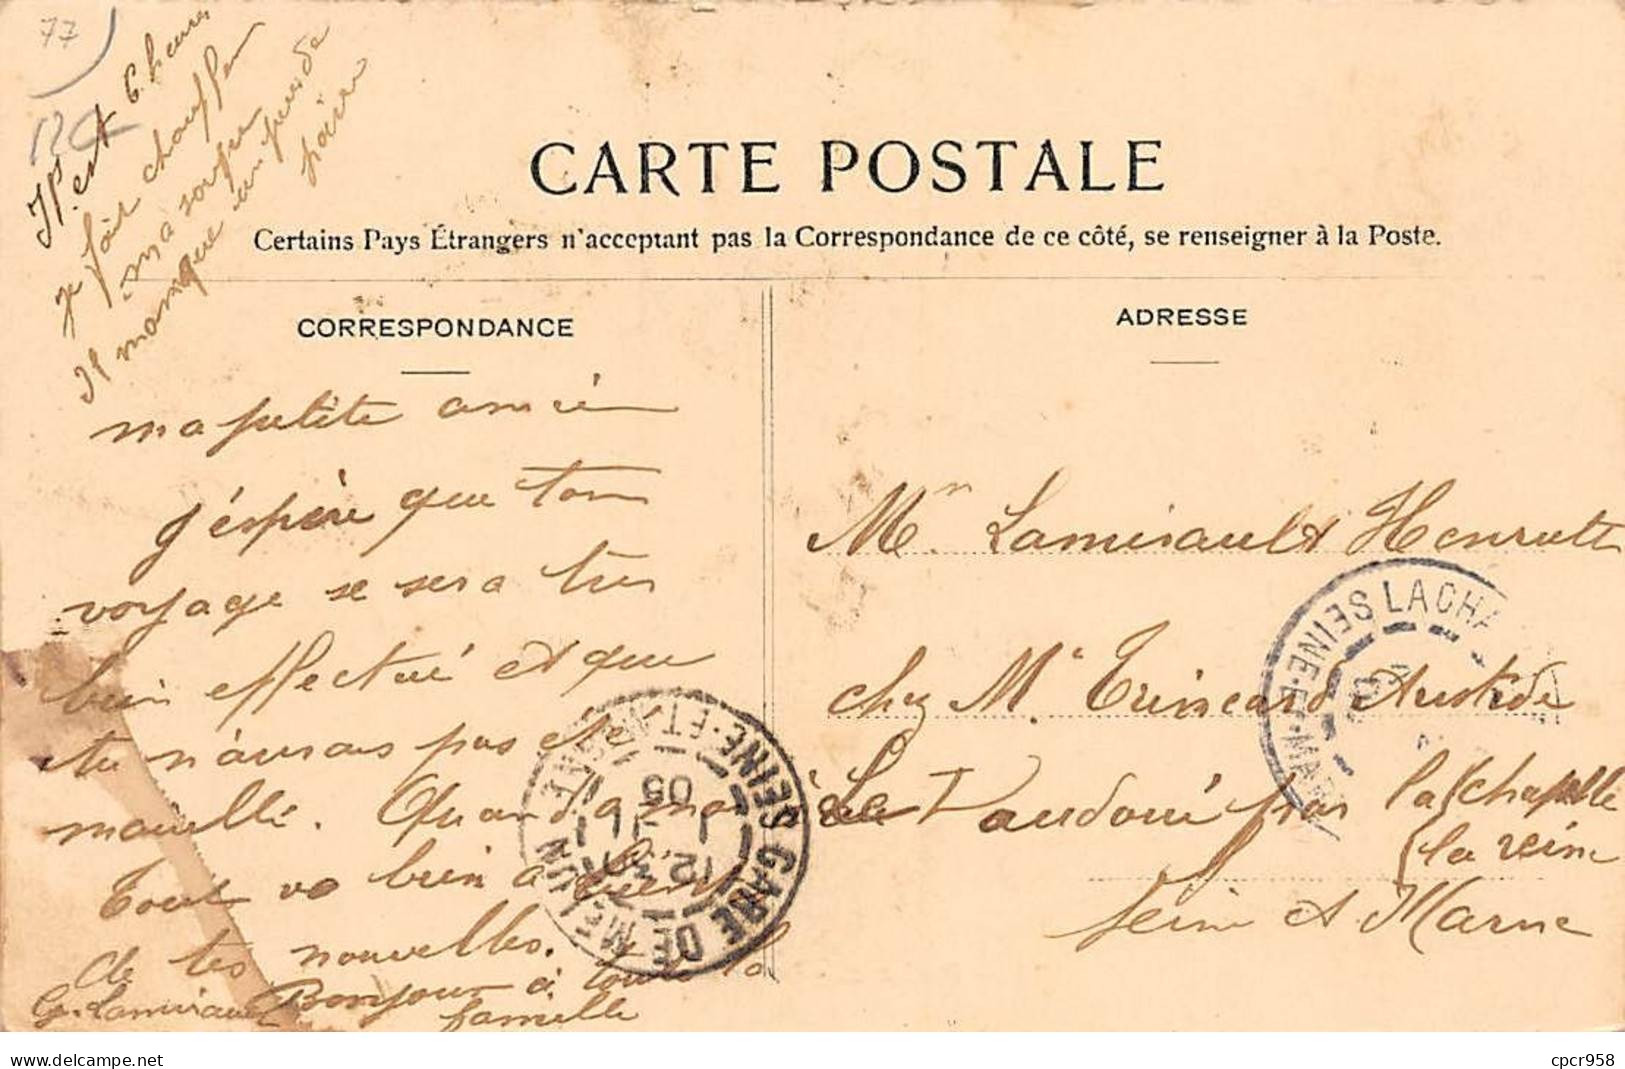 77
Il est 6 heures
je fait chauffer
ma soupe
Il manque un peu de
pain
CARTE POSTALE
Certains Pays Étrangers n'acceptant pas la Correspondance de ce côté, se renseigner à la Poste.
CORRESPONDANCE
ma petite amie
j'éspère que ton
voyage se sera tres
bien effectué et que
tu n'aurais pas été
mouillé. Quand a moi
Tout va bien a
de tes nouvelles.
Bonjour à toute la
famille
G. Lamirault
ADRESSE
Mr. Lamirault Henriette
chez Mr Trincard Aristide
à Le Vaudoué par la Chapelle
la reine
Seine et Marne
GARE DE MELUN
SEINE-ET-MARNE
12
11
05
LA CHA
SEINE-ET-MAR
delcampe.net
cpcr958